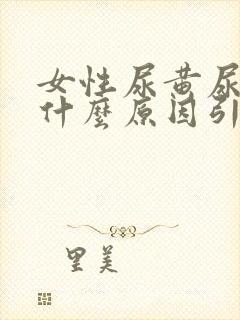 女性尿黄尿
什麼原因引
里美